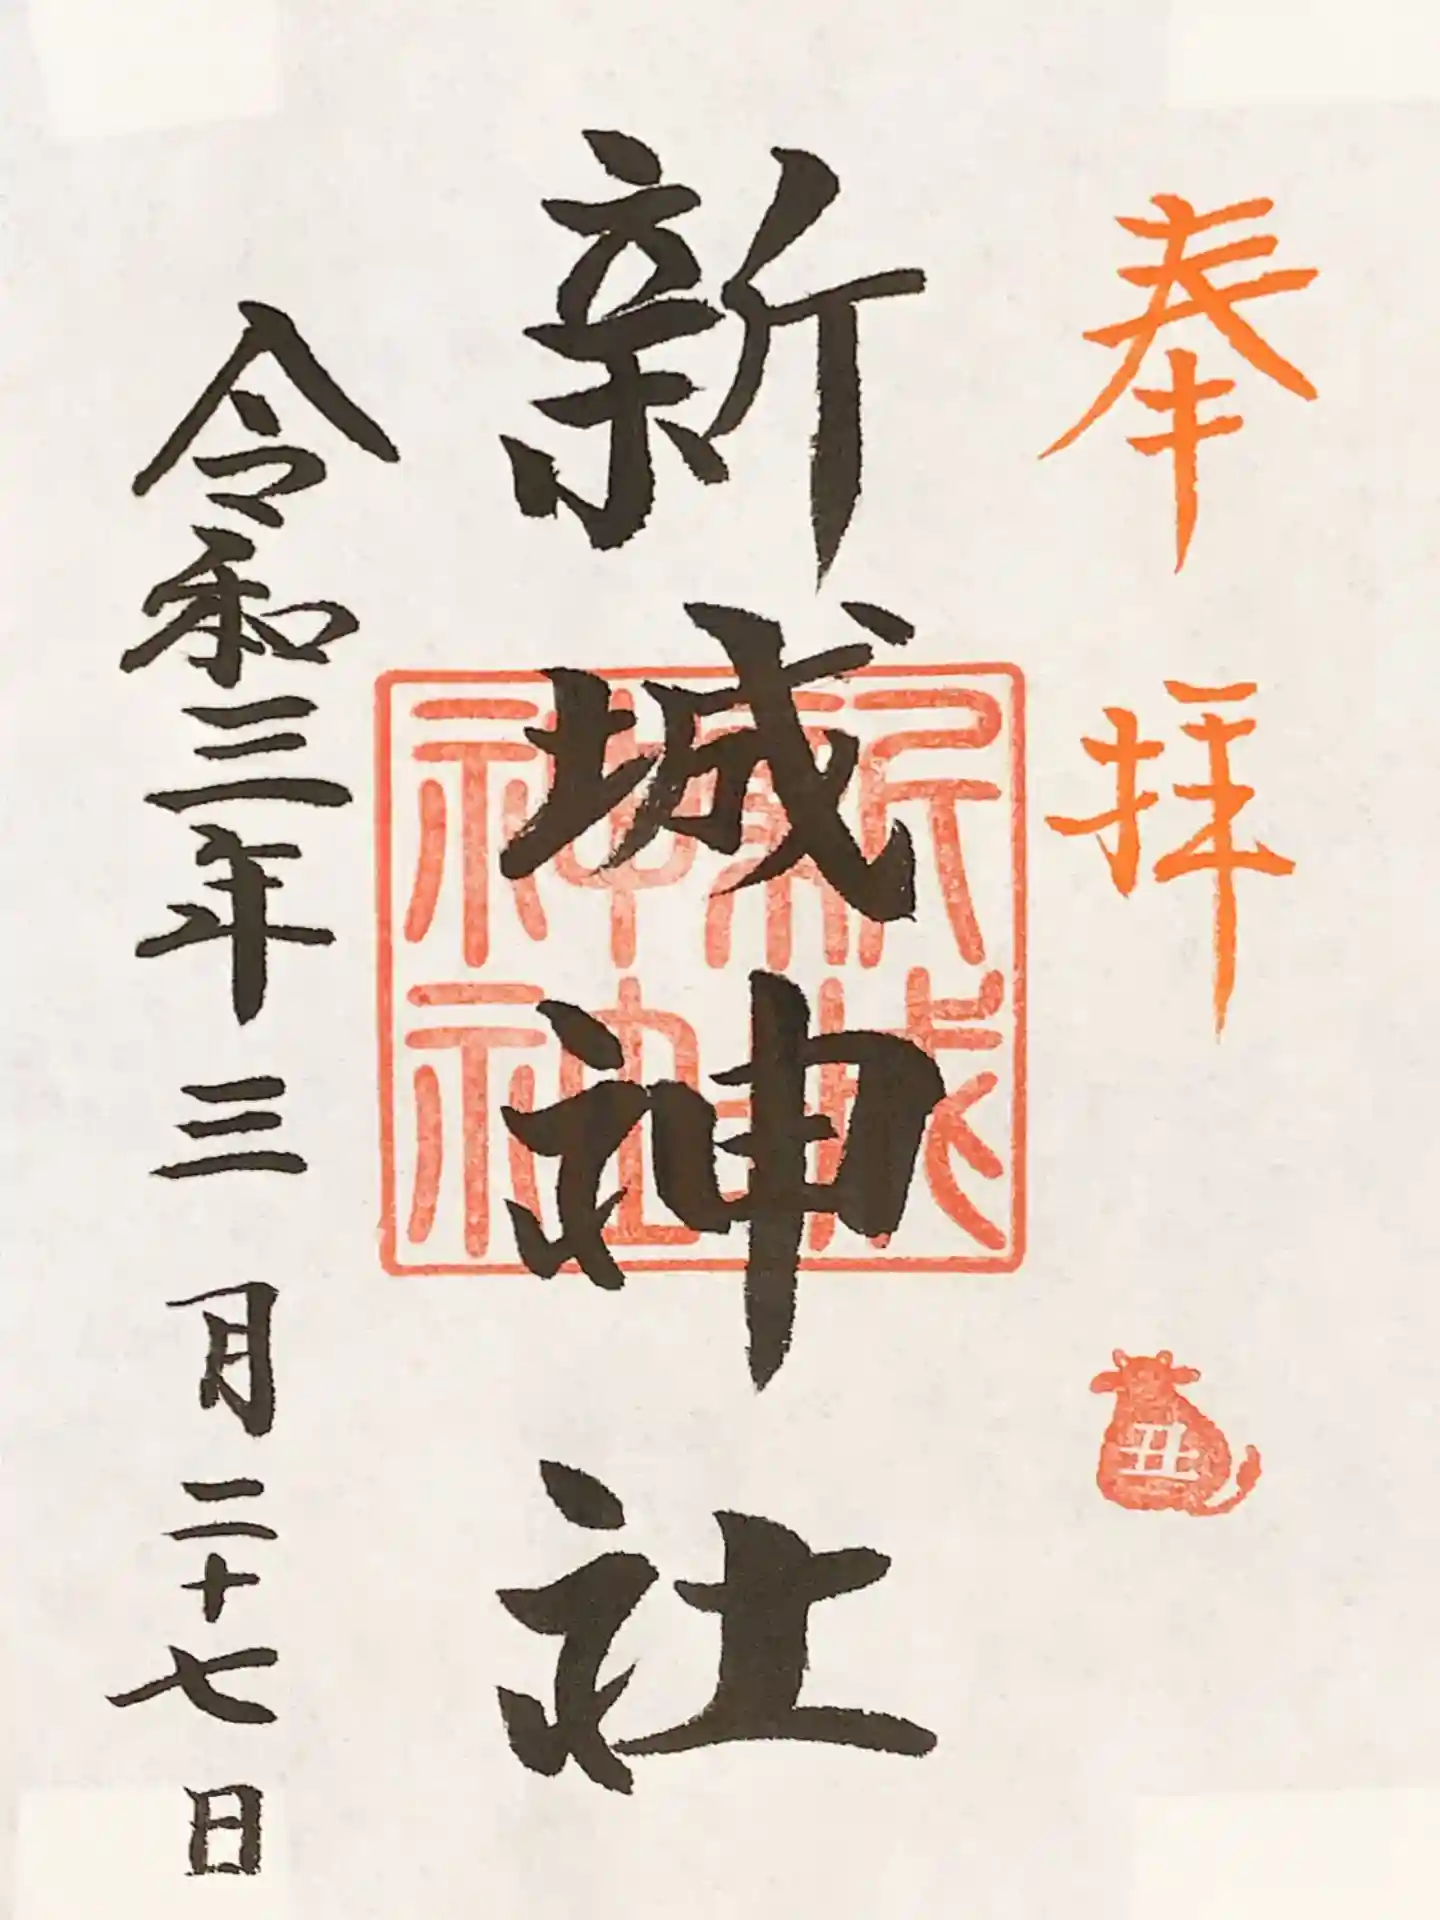 奉拝
丑
新城神社
新城神社
令和三年三月二十七日